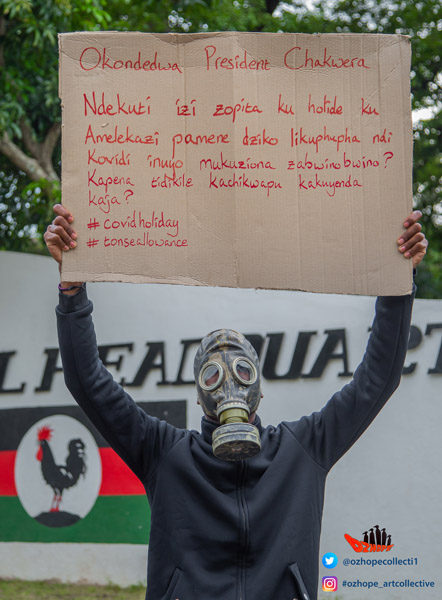 Okondedwa President Chakwera
Ndekuti izi zopita ku holide ku
Amelekazi pamene dziko likuphupha ndi
Kovidi inuyo mukuziona zabwinobwino?
Kapena tidikile kachikwapu kakuyenda
kaja?
#covidholiday
#tonseallowance
L HEADQUART
@ozhopecollecti1
#ozhope_artcollective